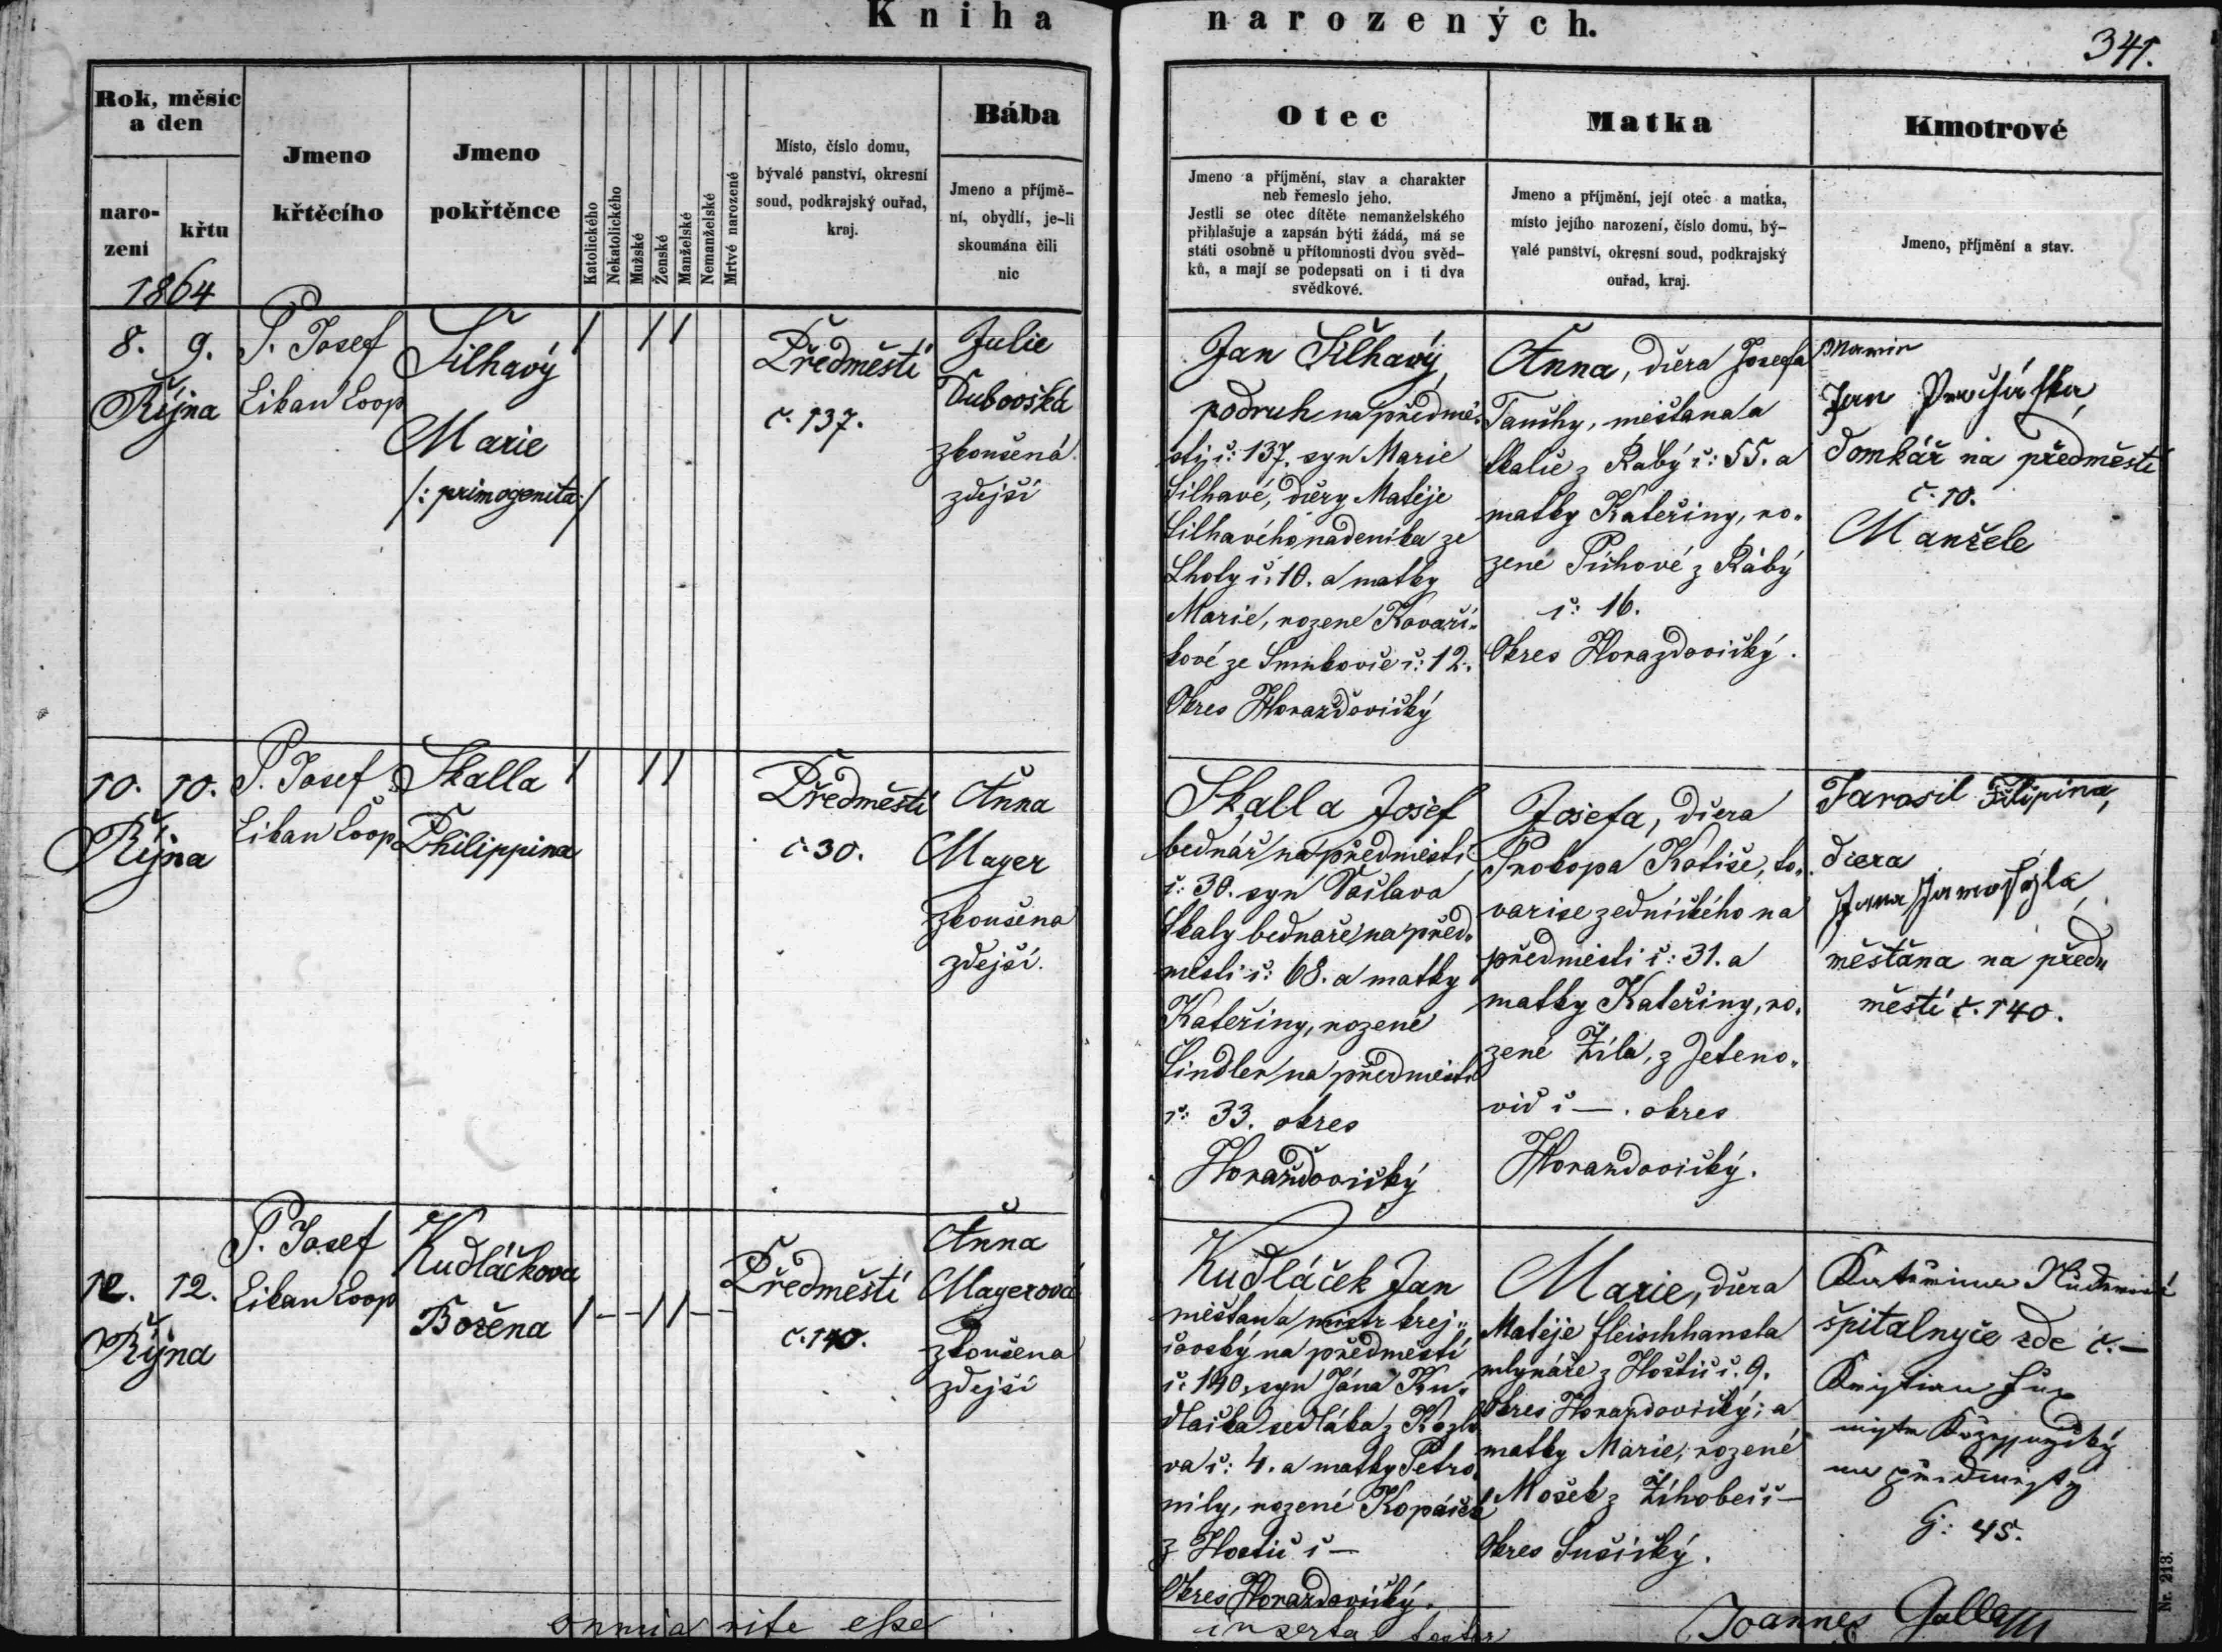 Kniha narozených.
341.
Rok, měsíc
a den
naro-
zení
křtu
1864
Jmeno
křtěcího
Jmeno
pokřtěnce
Katolického
Nekatolického
Mužské
Ženské
Manželské
Nemanželské
Mrtvé narozené
Místo, číslo domu,
bývalé panství, okresní
soud, podkrajský ouřad,
kraj.
Bába
Jmeno a příjmě-
ní, obydlí, je-li
skoumána čili
nic
Otec
Jmeno a příjmění, stav a charakter
neb řemeslo jeho.
Jestli se otec dítěte nemanželského
přihlašuje a zapsán býti žádá, má se
státi osobně u přítomnosti dvou svěd-
ků, a mají se podepsati on i ti dva
svědkové.
Matka
Jmeno a příjmění, její otec a matka,
místo jejího narození, číslo domu, bý-
valé panství, okresní soud, podkrajský
ouřad, kraj.
Kmotrové
Jmeno, příjmění a stav.
8. 9.
Října
P. Josef
Liban Coop
Šilhavý
Marie
/: primogenita :/
Předměstí
č. 137.
Julie
Dubovská
zkoušená
zdejší
Jan Šilhavý,
podruh na předmě-
stí č: 137. syn Marie
Silhavé, dcery Matěje
Silhavého nadeníka ze
Lhoty č: 10. a matky
Marie, rozene Kovaří-
kové ze Smrkovic č: 12.
Okres Horažďovický
Anna, dcera Josefa
Tauchy, mešťana a
tkalce z Rabý č: 55. a
matky Kateřiny, ro-
zené Píchové z Rábý
č: 16.
Okres Horazdovický.
Jan
domkář na předměstí
č. 10.
Manžele
10. 10.
Října
P. Josef
Liban Coop
Skalla
Philippina
Předměstí
č. 30.
Anna
Mayer
zkoušena
zdejší.
Skalla Josef
bednář na předměstí
č: 30. syn Vaclava
Skaly bednaře na před-
mesti č: 68. a matky
Kateřiny, rozené
Šindler na předmesti
č: 33. okres
Horažďovický
Josefa, dcera
Prokopa Kotiše, to-
varise zednického na
předmesti č: 31. a
matky Kateřiny, ro-
zené Žíla, z Jeteno-
vic č —. okres
Horazdovický.
Jarosil Filipina,
dcera
Jana
měštána na před-
městí č. 140.
12. 12.
Října
P. Josef
Liban Coop
Kudláčkova
Božena
Předměstí
č. 140.
Anna
Mayerová
zkoušena
zdejší
Kudláček Jan
měšťan a mistr krej-
čovský na předměstí
č: 140, syn Jána Ku-
dlačka sedláka z Kozlo
va č: 4. a matky Petro-
nily, rozené Kopáček
z Hostic č —
Okres Horazdovický.
Marie, dcera
Matěje Fleischhansla
mlynáře z Hostic č. 9.
Okres Horazdovický; a
matky Marie, rozené
Mošek z Žíhobec č —
Okres Sušický.
Kateřina
špitalnyče zde č. —
Kristian
mistr
na předměstý
č: 45.
omnia rite esse
inserta testor
Joannes Galla
Nr. 213.